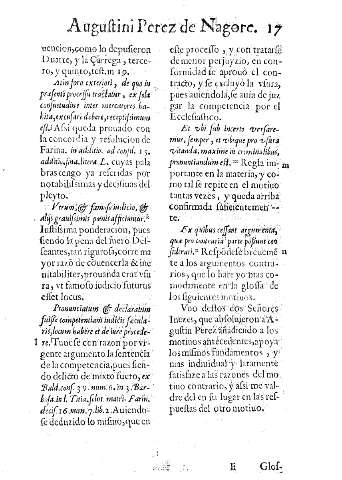 Augustini Perez de Nagore. 17
uencion, como lo depusieron
Duarte, y la Çarrega, terce-
ro, y quinto, test. in 19.
Atin foro exteriori, de quo in
præsenti processu tractatur, ex sola
conjuctudine inter mercatores ha-
bita, excusare debere, receptissimum
est. Assi queda prouado con
la concordia, y resolucion de
Farina. in addit. ad cons. 15.
additio, fina, litera L. cuyas pala
bras tengo ya referidas por
notabilissimas y decisiuas del
pleyto.
Verum, & famoso iudicio, &
alijs grauissimis pœnis afficiuntur.
Iustissima ponderacion, pues
siendo la pena del fuero Def-
seantes, tan riguroso, corre ma
yor razõ de cõuencerla & ine
uitabiliter, prouanda erat vsu
ra, vt famoso iudicio futurus
esset locus.
Pronunciatum & declaratum
fuisse competentiam iudicis secula-
ris, locum habere et de iure procede-
re. Tuuese con razon por vr-
gente argumento la sentencia
de la competencia, pues sien-
do delicto de mixto fuero, ex
Bald. cons. 39. num. 6. in 3. Bar-
bosa in l. Titia, solut. matri. Farin.
decis. 16. num. 7. lib. 2. Auiendo-
se deduzido lo mismo, que en
este processo, y con tratarse
de menor perjuyzio, en con-
formidad se aprouó el con-
tracto, y se excluyó la vsura,
pues auiendola, se auia de juz
gar la competencia por el
Ecclesiastico.
Et vbi sub incerto versare-
mur, semper, et vbique pro vsura
vitanda, maxime in criminalibus,
pronuntiandum est. Regla im-
portante en la materia, y co-
mo tal se repite en el motiuo
tantas vezes, y queda arriba
confirmada suficientemen-
te.
Ex quibus cessant argumenta,
quæ pro contraria parte possunt con
siderari. Respondese breuemẽ
te a los argumentos contra-
rios, que lo haré yo mas co-
modamente en la glossa de
los siguientes motiuos.
Vno de los dos Señores
Iuezes, que absoluieron a A-
gustin Perez añadiendo a los
motiuos antecedentes, apoya
los mismos fundamentos, y
mas indiuidual y latamente
satisfaze a las razones del mo
tiuo contrario, y assi me val-
dre del en su lugar en las res-
puestas del otro motiuo.
Ii Glos-